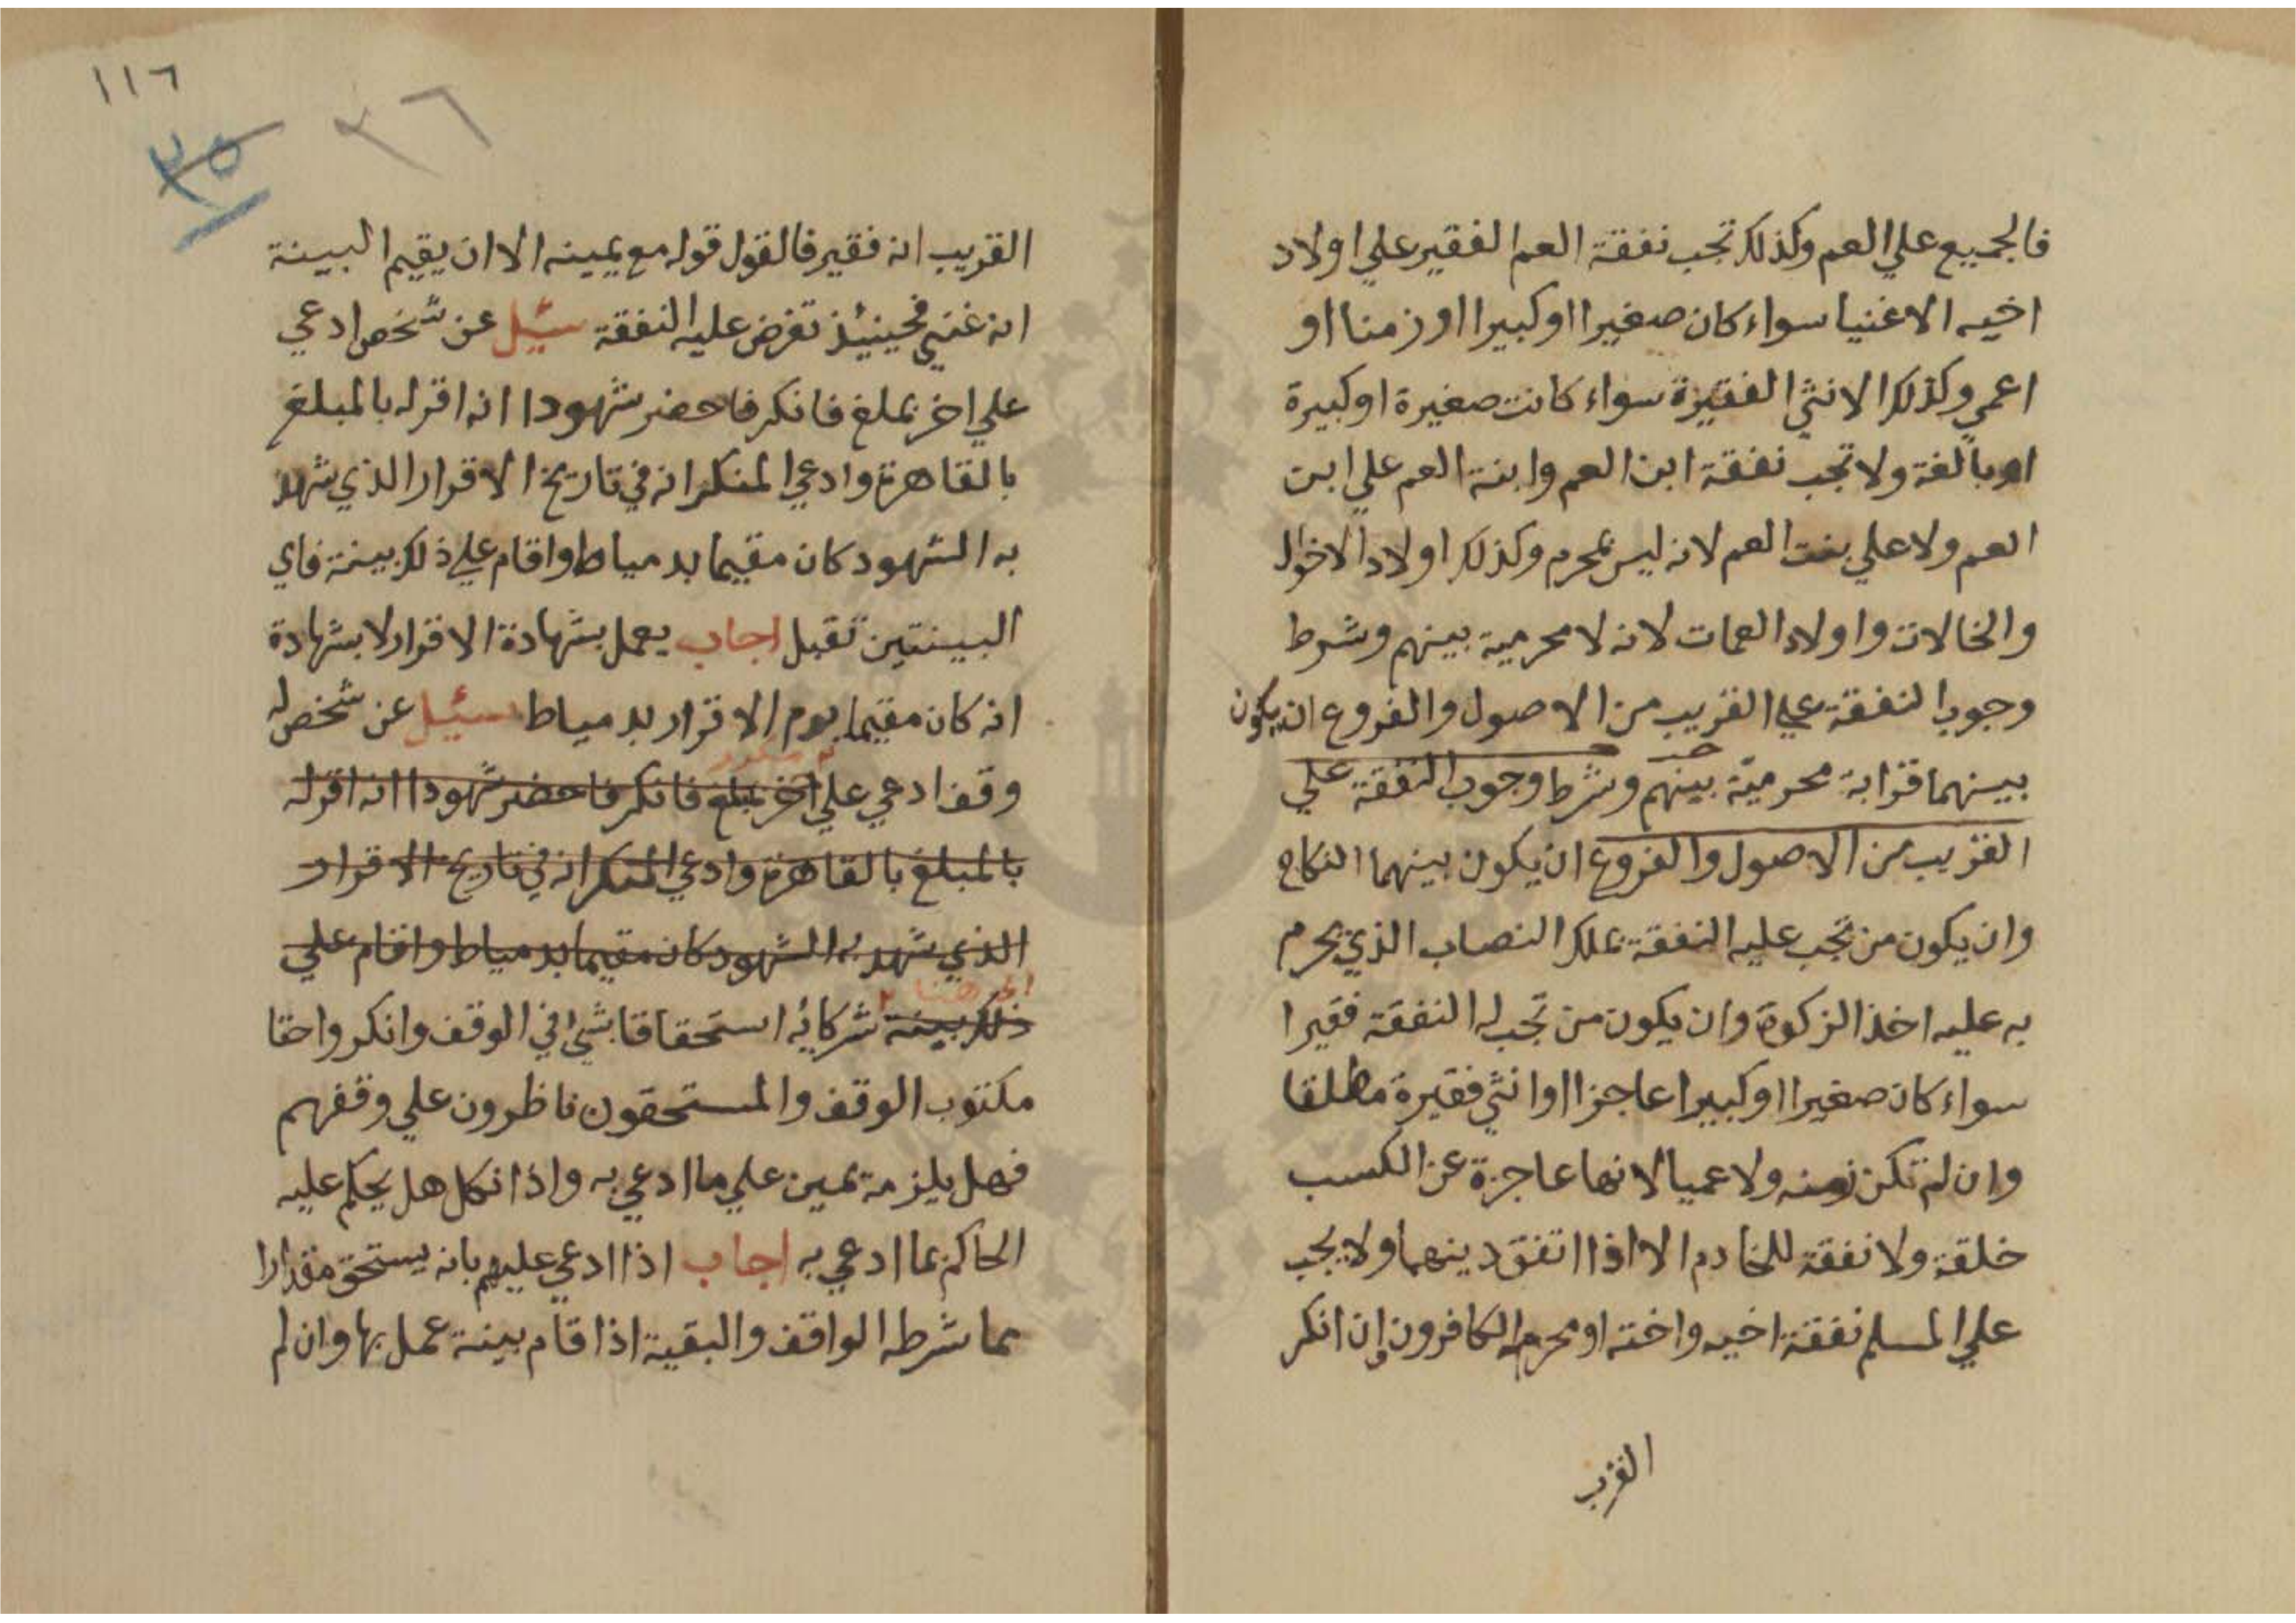 فالجميع علي العم وكذلك تجب نفقة العم الفقير علي اولاد
اخيه الاغنيا سواء كان صغيرا او كبيرا او زمنا او
اعمي وكذلك الانثي الفقيرة سواء كانت صغيرة او كبيرة
او بالغة ولا تجب نفقة ابن العم وابنة العم علي ابن
العم ولا علي بنت العم لانه ليس بمحرم وكذلك اولاد الاخوال
والخالات واولاد العمات لانه لا محرمية بينهم وشرط
وجوب النفقة علي القريب من الاصول والفروع ان يكون
بينهما قرابة محرمية بينهم وشرط وجوب النفقة علي
القريب من الاصول والفروع ان يكون بينهما النكاح
وان يكون من تجب عليه النفقة يملك النصاب الذي يحرم
به عليه اخذ الزكوة وان يكون من تجب له النفقة فقيرا
سواء كان صغيرا او كبيرا عاجزا او انثي فقيرة مطلقا
وان لم تكن زمنه ولا عميا لانها عاجزة عن الكسب
خلقة ولا نفقة للخادم الا اذا اتفق دينهما ولا يجب
علي المسلم نفقة اخيه واخته او محرمه الكافرون وان انكر
القريب
١١٦
٣٥ ٣٦
القريب انه فقير فالقول قوله مع يمينه الا ان يقيم البينة
انه غني فحينيئذ تفرض عليه النفقة سيئل عن شخص ادعي
علي اخر بملغ فانكر فاحضر شهودا انه اقر له بالمبلغ
بالقاهرة وادعي المنكر انه في تاريخ الاقرار الذي شهد
به الشهود كان مقيما بدمياط واقام علي ذلك بينة فاي
البينتين تقبل اجاب يعمل بشهادة الاقرار لا بشهادة
انه كان مقيما يوم الاقرار بدمياط سيئل عن شخص له
وقف ادعي علي اخر بملغ فانكر فاحضر شهودا انه اقر له
بالمبلغ بالقاهرة وادعي المنكر انه في تاريخ الاقرار
الذي شهد به الشهود كان مقيما بدمياط واقام علي
ذلك بينة شركائه استحقاقا بشئ في الوقف وانكر واحقا
مكتوب الوقف والمستحقون ناظرون علي وقفهم
فهل يلزمة يمين علي ما ادعي به واذا نكل هل يحكم عليه
الحاكم بما ادعي به اجاب اذا ادعي عليهم بانه يستحق مقدارا
بما شرطه الواقف والبقية اذا قام بينة عمل بها وان لم